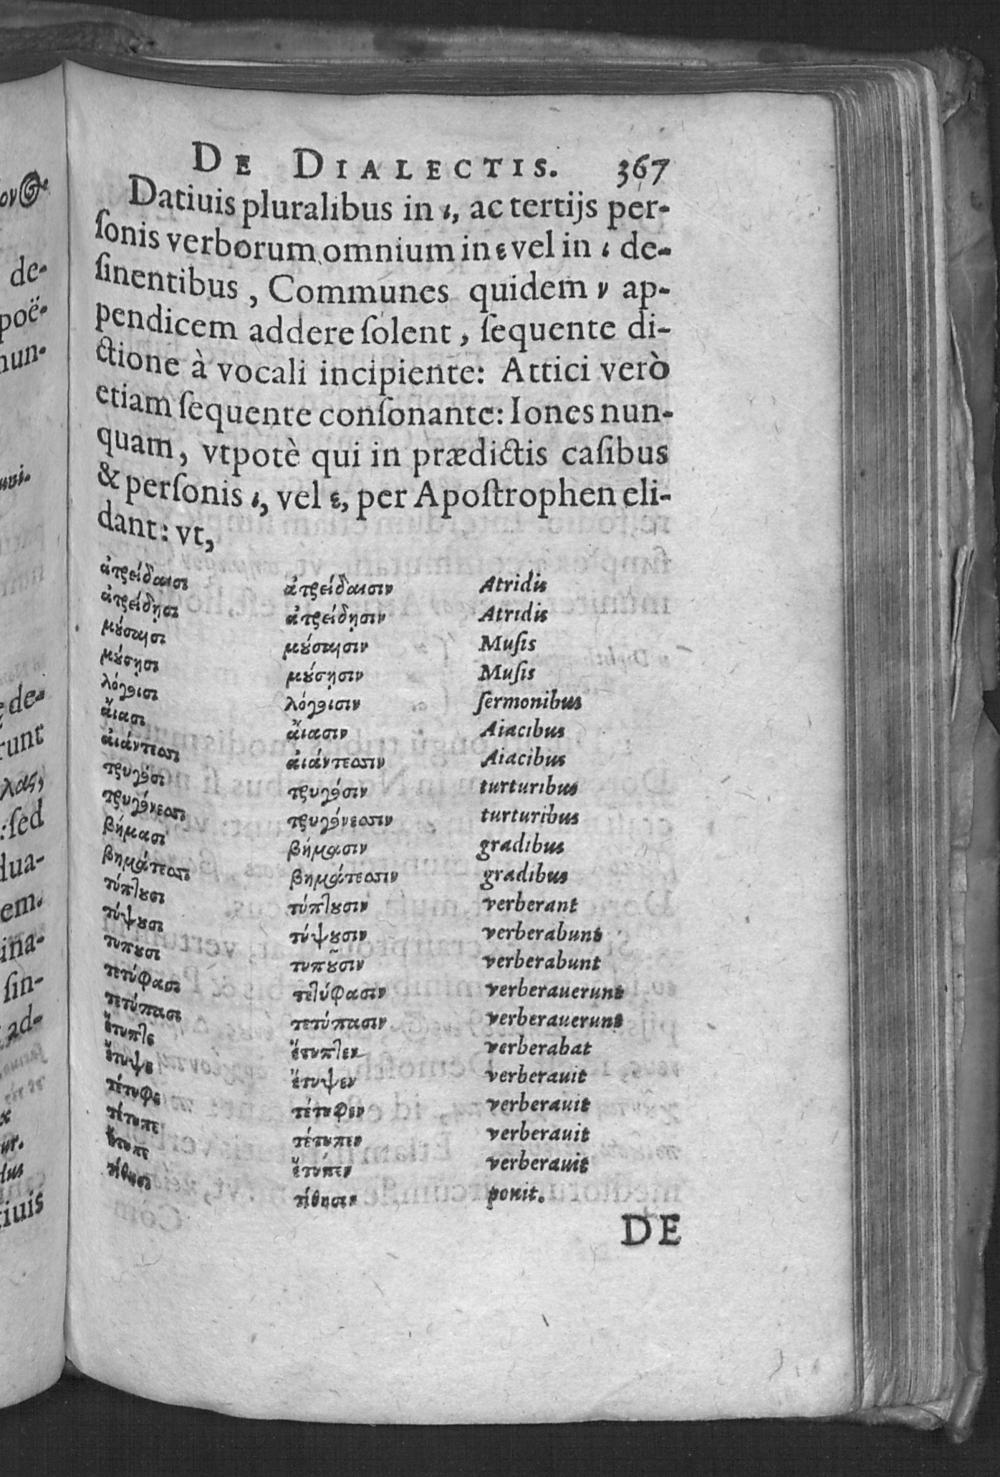 DE DIALECTIS. 367
Datiuis pluralibus in ι, ac tertijs per-
ſonis verborum omnium in ε vel in ι de-
ſinentibus, Communes quidem ν ap-
pendicem addere ſolent, ſequente di-
ctione à vocali incipiente: Attici verò
etiam ſequente conſonante: Iones nun-
quam, vtpotè qui in prædictis caſibus
& perſonis ι, vel ε, per Apoſtrophen eli-
dant: vt,
ἀτρείδαισι ἀτρείδαισιν Atridis
ἀτρείδῃσι ἀτρείδῃσιν Atridis
μούσαισι μούσαισιν Muſis
μούσῃσι μούσῃσιν Muſis
λόγοισι λόγοισιν ſermonibus
ἄιασι ἄιασιν Aiacibus
ἀιάντεσσι ἀιάντεσσιν Aiacibus
τρυγόσι τρυγόσιν turturibus
τρυγόνεσσι τρυγόνεσσιν turturibus
βήμασι βήμασιν gradibus
βημάτεσσι βημάτεσσιν gradibus
τύπτουσι τύπτουσιν verberant
τύψουσι τύψουσιν verberabunt
τυποῦσι τυποῦσιν verberabunt
τετύφασι τετύφασιν verberauerunt
τετύπασι τετύπασιν verberauerunt
ἔτυπτε ἔτυπτεν verberabat
ἔτυψε ἔτυψεν verberauit
τέτυφε τέτυφεν verberauit
τέτυπε τέτυπεν verberauit
ἔτυπε ἔτυπεν verberauit
τίθησι τίθησιν ponit.
DE
de-
poë-
nun-
de-
runt
:ſed
dua-
em.
ina-
ſin-
ad-
tiuis